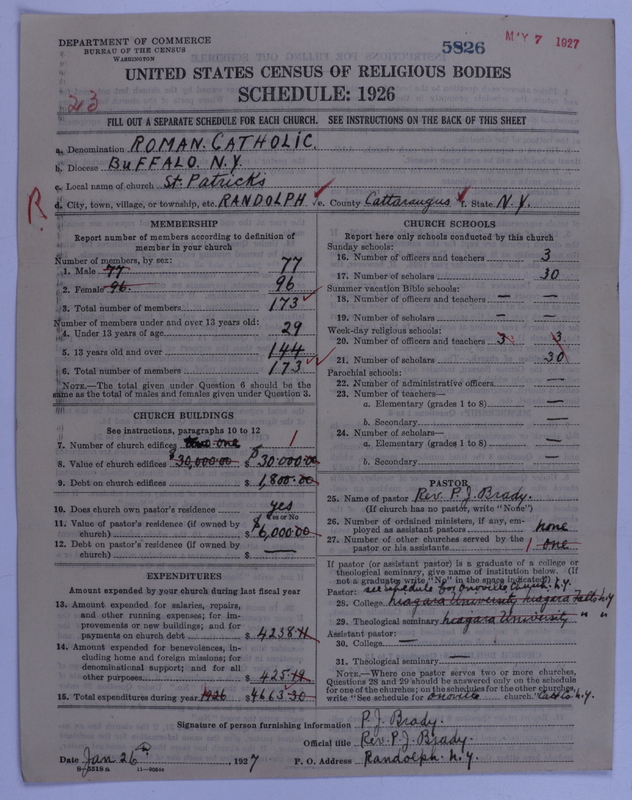 DEPARTMENT OF COMMERCE
BUREAU OF THE CENSUS
WASHINGTON
5826
MAY 7 1927
UNITED STATES CENSUS OF RELIGIOUS BODIES
SCHEDULE: 1926
23
FILL OUT A SEPARATE SCHEDULE FOR EACH CHURCH. SEE INSTRUCTIONS ON THE BACK OF THIS SHEET
a. Denomination ROMAN. CATHOLIC.
b. Diocese BUFFALO. N.Y.
c. Local name of church St. Patricks
R
d. City, town, village, or township, etc. RANDOLPH e. County Cattaraugus f. State N.Y.
MEMBERSHIP
Report number of members according to definition of
member in your church
Number of members, by sex:
1. Male 77 77
2. Female 96. 96
3. Total number of members 173
Number of members under and over 13 years old:
4. Under 13 years of age 29
5. 13 years old and over 144
6. Total number of members 173
NOTE.—The total given under Question 6 should be the
same as the total of males and females given under Question 3.
CHURCH BUILDINGS
See instructions, paragraphs 10 to 12
7. Number of church edifices one 1
8. Value of church edifices $30,000.00 $ 30.000.00
9. Debt on church edifices $ 1,800.00
10. Does church own pastor's residence yes
Yes or No
11. Value of pastor's residence (if owned by
church) $ 6,000.00
12. Debt on pastor's residence (if owned by
church) $ —
EXPENDITURES
Amount expended by your church during last fiscal
13. Amount expended for salaries, repairs,
and other running expenses; for im-
provements or new buildings; and for
payments on church debt $ 4238.11
14. Amount expended for benevolences, in-
cluding home and foreign missions; for
denominational support; and for all
other purposes $ 425.19
15. Total expenditures during year 1926 $ 4663.30
CHURCH SCHOOLS
Report here only schools conducted by this church
Sunday schools:
16. Number of officers and teachers 3
17. Number of scholars 30
Summer vacation Bible schools:
18. Number of officers and teachers — —
19. Number of scholars — —
Week-day religious schools:
20. Number of officers and teachers 3 3
21. Number of scholars 30
Parochial schools:
22. Number of administrative officers —
23. Number of teachers—
a. Elementary (grades 1 to 8) —
b. Secondary —
24. Number of scholars—
a. Elementary (grades 1 to 8) —
b. Secondary —
PASTOR
25. Name of pastor Rev. P. J. Brady.
(If church has no pastor, write "None")
26. Number of ordained ministers, if any, em-
ployed as assistant pastors none
27. Number of other churches served by the
pastor or his assistants 1 one
If pastor (or assistant pastor) is a graduate of a college or
theological seminary, give name of institution below. (If
not a graduate write "No" in the space indicated)
Pastor: see schedule for Onoville Church. N.Y.
28. College Niagara University Niagara Falls N.Y
29. Theological seminary Niagara University " "
Assistant pastor:
30. College —
31. Theological seminary —
NOTE.—Where one pastor serves two or more churches,
Questions 28 and 29 should be answered only on the schedule
for one of the churches; on the schedules for the other churches,
write "See schedule for Onoville church." Catt Co N.Y.
Signature of person furnishing information P. J. Brady.
Official title Rev. P. J. Brady.
Date Jan 26th, 1927 P. O. Address Randolph. N.Y.
8-5518a